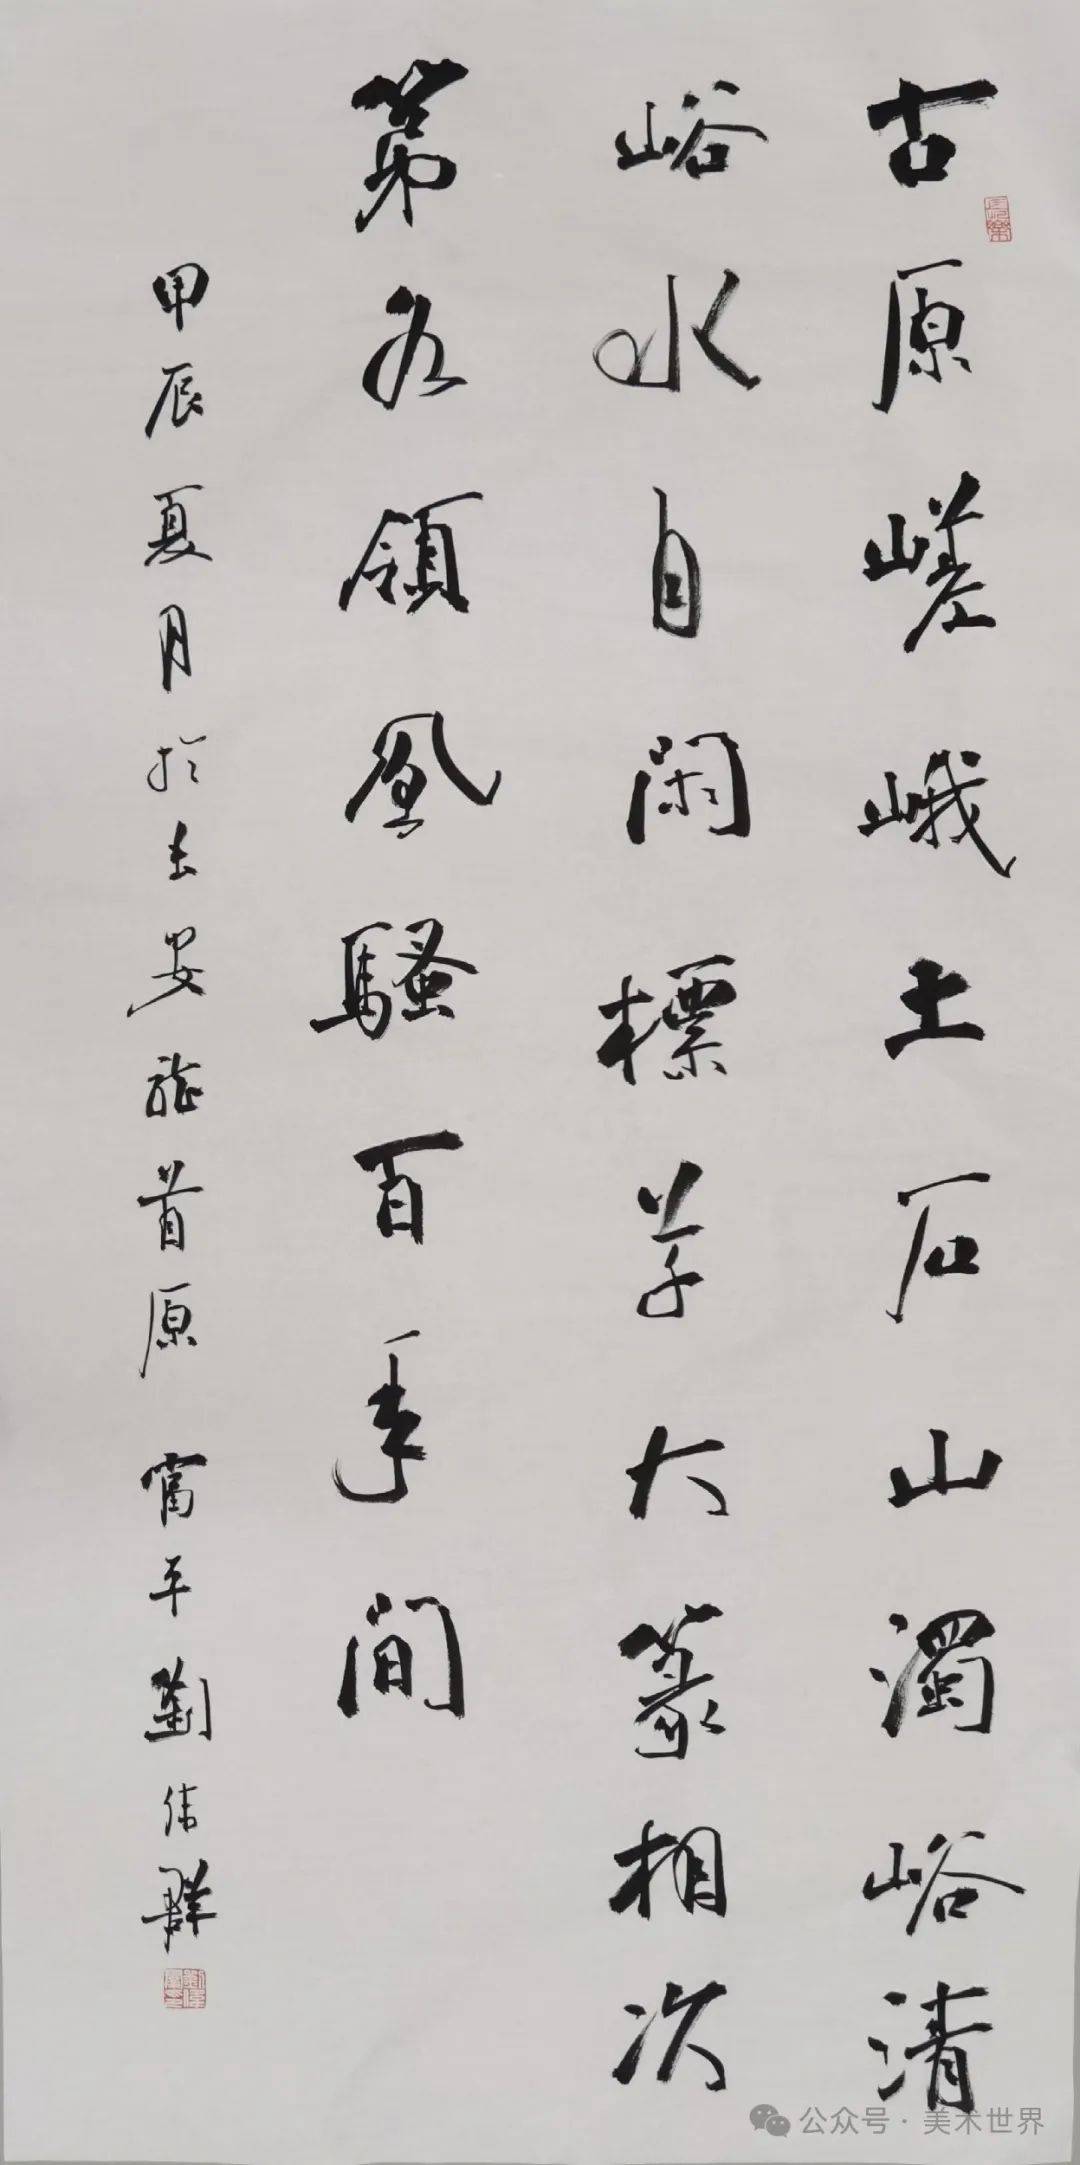 古原嵯峨土石山濁峪清
峪水自閑標草大篆相次
第各領風騷百年間
甲辰夏月於長安龍首原 富平劉偉群
公众号·美术世界